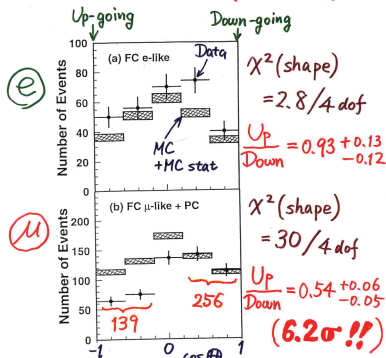 Up-going
Down-going
e
(a) FC e-like
Data
MC
+MC stat
Number of Events
100
80
60
40
20
0
χ² (shape)
= 2.8/4 dof
Up/Down = 0.93 +0.13 -0.12
μ
(b) FC μ-like + PC
Number of Events
200
150
100
50
0
139
256
-1
0
1
cosΘ
χ² (shape)
= 30/4 dof
Up/Down = 0.54 +0.06 -0.05
(6.2σ !!)